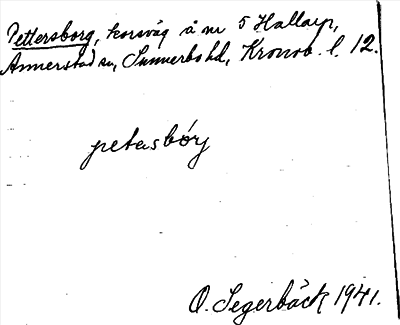 Pettersborg, korsväg å nr 5 Hallarp,
Annerstad sn, Sunnerbo hd, Kronob. l. 12.
petasbórj
O. Segerbäck 1941.